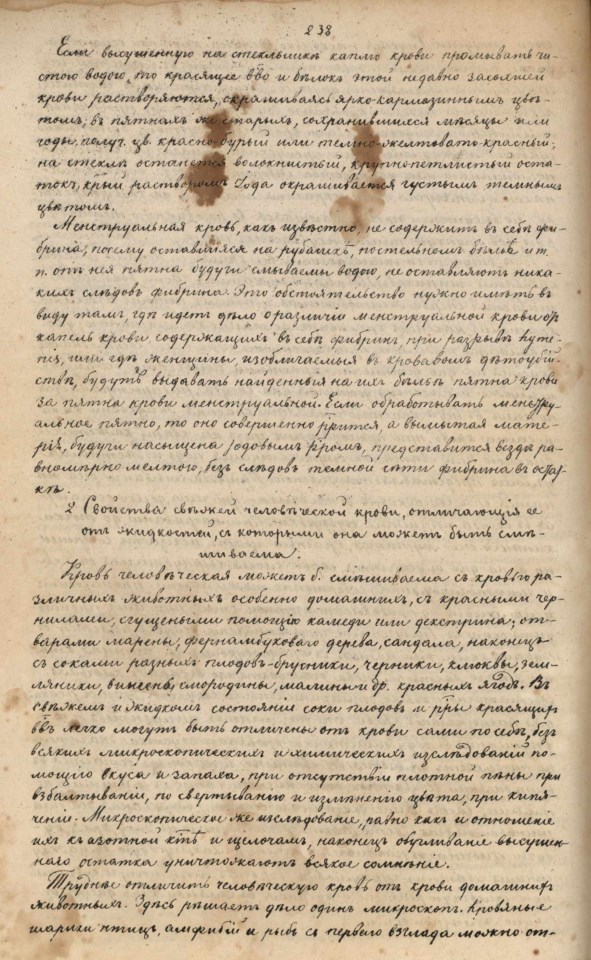 238
Если высушенную на стеклышкѣ каплю крови промывать чи-
стою водою, то красящее в̃во и бѣлокъ этой недавно засохшей
крови растворяются, окрашиваясь ярко-кармазиннымъ цвѣ-
томъ; въ пятнахъ же старыхъ, сохранившихся мѣсяцы или
годы, получ. цв. красно-бурый или темно-желтовато-красный;
на стеклѣ останется волокнистый, крупно-петлистый оста-
токъ, к̃рый растворомъ Іода окрашивается густымъ темнымъ
цвѣтомъ.
Менструальная кровь, какъ извѣстно, не содержитъ въ себѣ фи-
брина, почему оставшіяся на рубашкѣ, постельномъ бѣльѣ и т.
п. отъ нея пятна будучи смываемы водою, не оставляютъ ника-
кихъ слѣдовъ фибрина. Это обстоятельство нужно имѣть въ
виду тамъ, гдѣ идетъ дѣло о различіи менструальной крови отъ
капель крови, содержащихъ въ себѣ фибринъ, при разрывѣ hyme-
nis, или гдѣ женщины, изобличаемыя въ кровавомъ дѣтоубій-
ствѣ, будутъ выдавать найденныя на ихъ бѣльѣ пятна крови
за пятна крови менструальной. Если обработывать менстру-
альное пятно, то оно совершенно р̃рится, а вымытая мате-
рія, будучи насыщена іодовымъ р̃ромъ, представится вездѣ ра-
вномѣрно желтою, безъ слѣдовъ темной сѣти фибрина въ остат-
кѣ.
2 Свойства свѣжей человѣческой крови, отличающія ее
отъ жидкостей, съ которыми она можетъ быть смѣ-
шиваема.
Кровь человѣческая можетъ б. смѣшиваема съ кровью ра-
зличныхъ животныхъ особенно домашнихъ, съ красными чер-
нилами, сгущеными помощію камеди или декстрина; от-
варами марены, фернамбуковаго дерева, сандала, наконецъ
съ соками разныхъ плодовъ-брусники, черники, клюквы, зем-
ляники, вишень, смородины, малины и др. красныхъ ягодъ. Въ
свѣжемъ и жидкомъ состояніи соки плодовъ и р̃ры красящихъ
в̃въ легко могутъ быть отличены отъ крови сами по себѣ, безъ
всякихъ микроскопическихъ и химическихъ изслѣдованій по-
мощію вкуса и запаха, при отсутствіи плотной пѣны при
взбалтываніи, по свертыванію и измѣненію цвѣта, при кипя-
ченіи. Микроскопическое же изслѣдованіе, равно какъ и отношеніе
ихъ къ азотной к̃тѣ и щелочамъ, наконецъ обугливаніе высушен-
наго остатка уничтожаютъ всякое сомнѣніе.
Труднѣе отличить человѣческую кровь отъ крови домашнихъ
животныхъ. Здѣсь рѣшаетъ дѣло одинъ микроскопъ. Кровяные
шарики птицъ, амфибій и рыбъ съ перваго взгляда можно от-